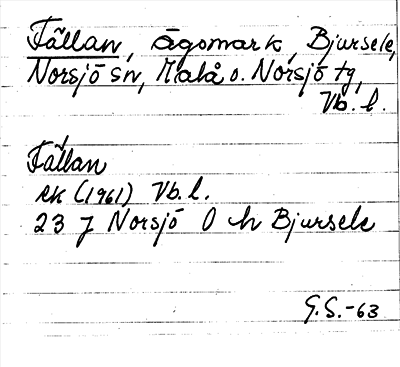 Fällan, ägomark, Bjursele,
Norsjö sn, Malå o. Norsjö tg,
Vb. l.
Fällan
ek (1961) Vb. l.
23 J Norsjö O h Bjursele
G.S.-63